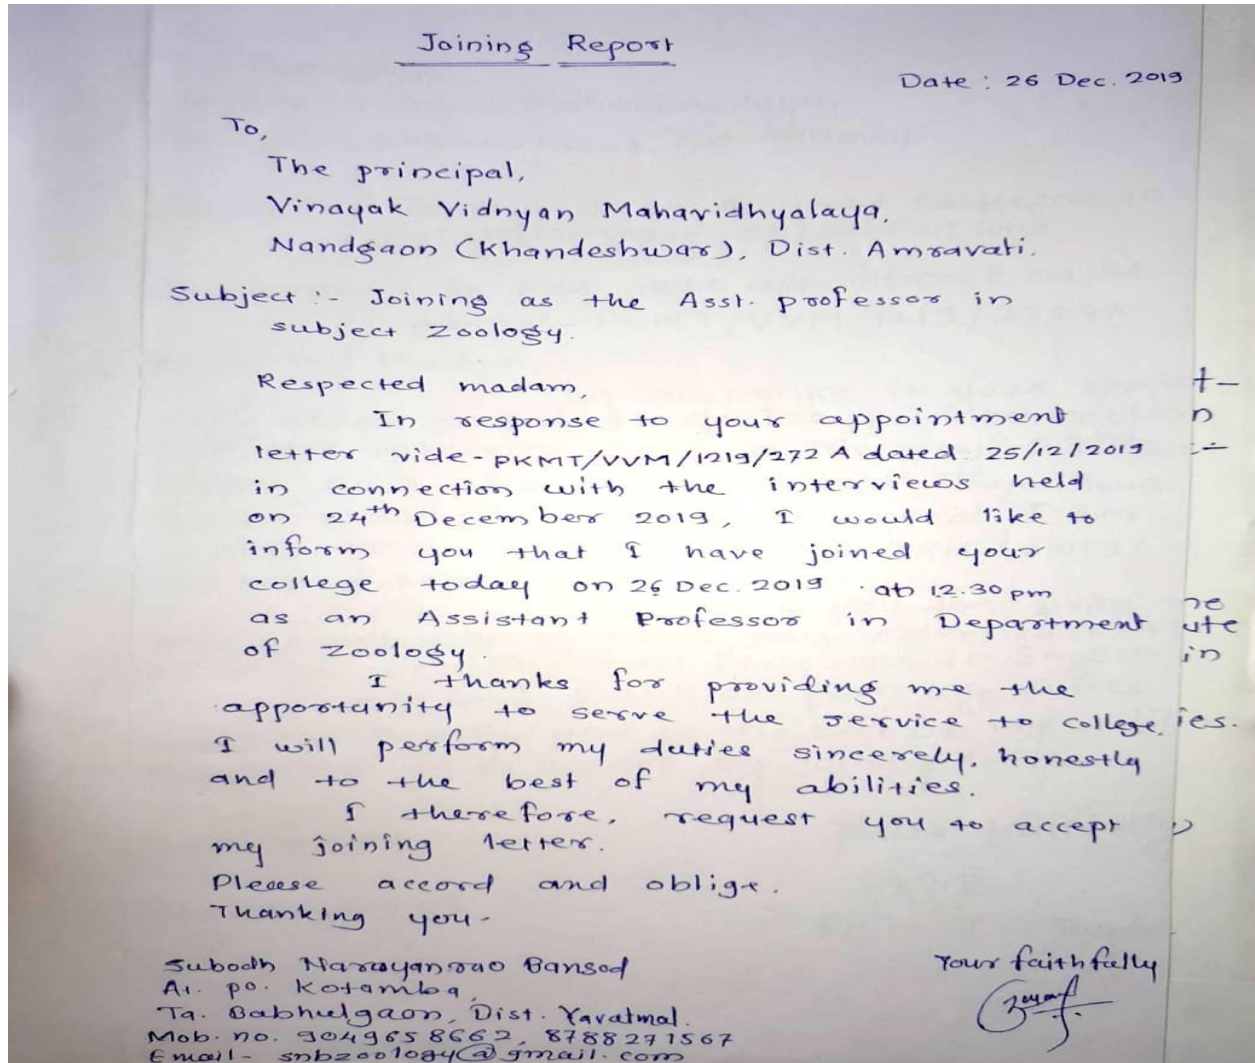 Joining Report
Date : 26 Dec. 2019
To,
The principal,
Vinayak Vidnyan Mahavidhyalaya,
Nandgaon (Khandeshwar), Dist. Amravati.
Subject :- Joining as the Asst. professor in
subject zoology.
Respected madam,
In response to your appointment
letter vide - PKMT/VVM/1219/272 A dated. 25/12/2019
in connection with the interviews held
on 24th December 2019, I would like to
inform you that I have joined your
college today on 26 Dec. 2019 at 12.30 pm
as an Assistant Professor in Department
of zoology.
I thanks for providing me the
apportunity to serve the service to college.
I will perform my duties sincerely, honestly
and to the best of my abilities.
I therefore, request you to accept
my joining letter.
Please accord and oblige.
Thanking you -
Your faithfully
Subodh Narayanrao Bansod
At. po. Kotamba
Ta. Babhulgaon, Dist. Yavatmal.
Mob. no. 9049658662, 8788271567
Email - snbzoology@gmail.com
ute
in
ies.